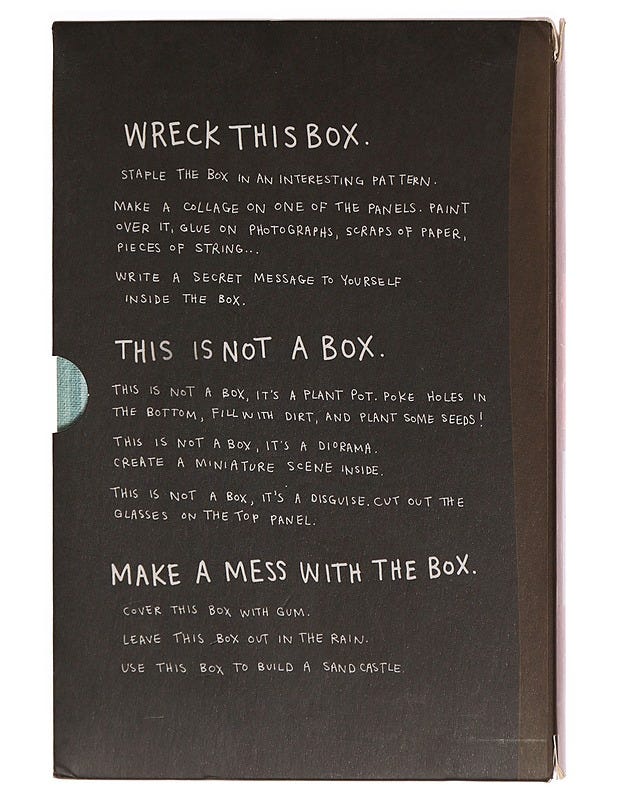 WRECK THIS BOX.
STAPLE THE BOX IN AN INTERESTING PATTERN.
MAKE A COLLAGE ON ONE OF THE PANELS. PAINT
OVER IT, GLUE ON PHOTOGRAPHS, SCRAPS OF PAPER,
PIECES OF STRING...
WRITE A SECRET MESSAGE TO YOURSELF
INSIDE THE BOX.
THIS IS NOT A BOX.
THIS IS NOT A BOX, IT'S A PLANT POT. POKE HOLES IN
THE BOTTOM, FILL WITH DIRT, AND PLANT SOME SEEDS!
THIS IS NOT A BOX, IT'S A DIORAMA.
CREATE A MINIATURE SCENE INSIDE.
THIS IS NOT A BOX, IT'S A DISGUISE. CUT OUT THE
GLASSES ON THE TOP PANEL.
MAKE A MESS WITH THE BOX.
COVER THIS BOX WITH GUM.
LEAVE THIS BOX OUT IN THE RAIN.
USE THIS BOX TO BUILD A SANDCASTLE.